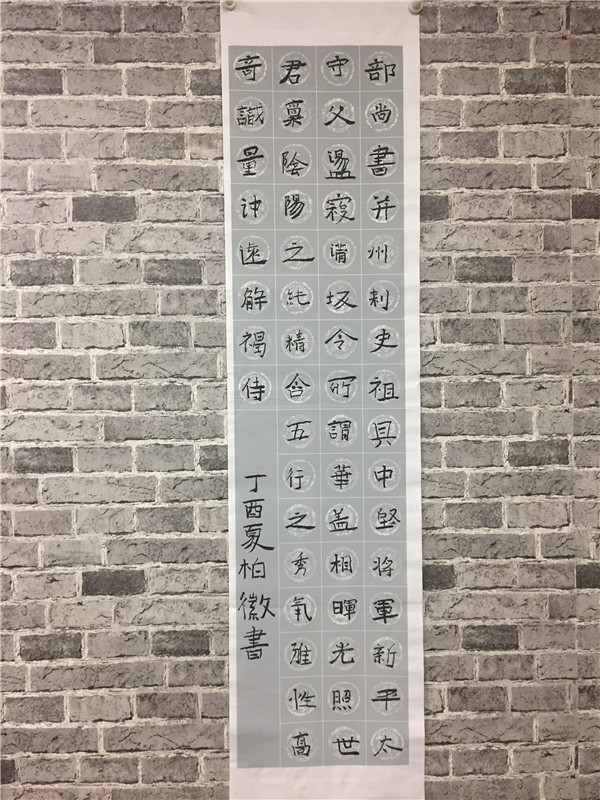 部尚書并州刺史祖具中堅將軍新平太
守父盪寇蒲坂令所謂華蓋相暉光照世
君稟陰陽之純精含五行之秀氣雅性高
奇識量沖遠解褐侍
丁酉夏柏徽書